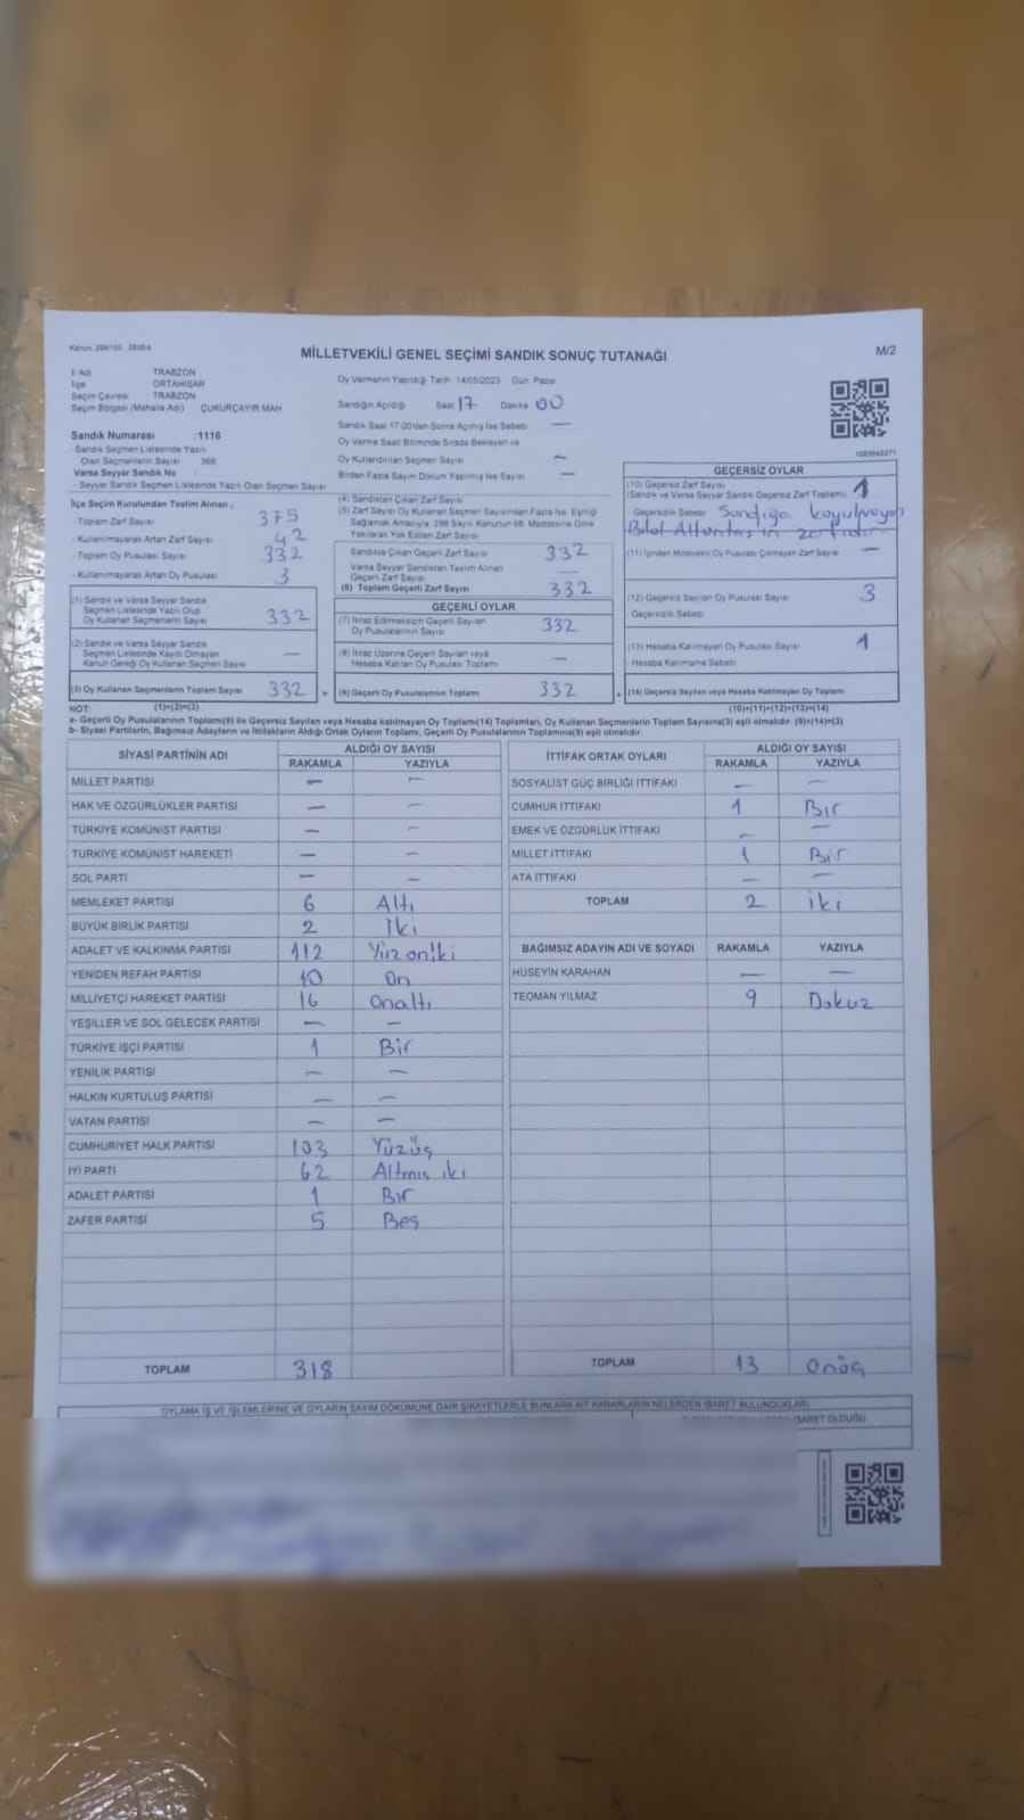 Kanun 298/105
MİLLETVEKİLİ GENEL SEÇİMİ SANDIK SONUÇ TUTANAĞI
M/2
İl Adı TRABZON
İlçe ORTAHİSAR
Seçim Çevresi TRABZON
Seçim Bölgesi (Mahalle Adı) ÇUKURÇAYIR MAH
Sandık Numarası :1116
Sandık Seçmen Listesinde Yazılı
Olan Seçmenlerin Sayısı
Varsa Seyyar Sandık No
- Seyyar Sandık Seçmen Listesinde Yazılı Olan Seçmen Sayısı
Oy Vermenin Yapıldığı Tarih 14/05/2023 Gün Pazar
Sandığın Açıldığı Saat 17 Dakika 00
Sandık Saat 17.00'den Sonra Açılmış İse Sebebi —
Oy Verme Saati Bitiminde Sırada Bekleyen ve
Oy Kullandırılan Seçmen Sayısı —
Birden Fazla Sayım Döküm Yapılmış İse Sayısı —
İlçe Seçim Kurulundan Teslim Alınan ;
- Toplam Zarf Sayısı 375
- Kullanılmayarak Artan Zarf Sayısı 42
- Toplam Oy Pusulası Sayısı 332
- Kullanılmayarak Artan Oy Pusulası 3
(1) Sandık ve Varsa Seyyar Sandık
Seçmen Listesinde Yazılı Olup
Oy Kullanan Seçmenlerin Sayısı 332
(2) Sandık ve Varsa Seyyar Sandık
Seçmen Listesinde Kayıtlı Olmayan
Kanun Gereği Oy Kullanan Seçmen Sayısı —
(3) Oy Kullanan Seçmenlerin Toplam Sayısı 332
(1)+(2)=(3)
(4) Sandıktan Çıkan Zarf Sayısı
(5) Zarf Sayısı Oy Kullanan Seçmen Sayısından Fazla İse, Eşitliği
Sağlamak Amacıyla, 298 Sayılı Kanunun 98. Maddesine Göre
Yakılarak Yok Edilen Zarf Sayısı
Sandıkta Çıkan Geçerli Zarf Sayısı 332
Varsa Seyyar Sandıktan Teslim Alınan
Geçerli Zarf Sayısı —
(6) Toplam Geçerli Zarf Sayısı 332
GEÇERLİ OYLAR
(7) İtiraz Edilmeksizin Geçerli Sayılan
Oy Pusulalarının Sayısı 332
(8) İtiraz Üzerine Geçerli Sayılan veya
Hesaba Katılan Oy Pusulası Toplamı —
(9) Geçerli Oy Pusulalarının Toplamı 332
GEÇERSİZ OYLAR
(10) Geçersiz Zarf Sayısı
(Sandık ve Varsa Seyyar Sandık Geçersiz Zarf Toplamı) 1
Geçersizlik Sebebi Sandığa koyulmayan
(11) İçinden Milletvekili Oy Pusulası Çıkmayan Zarf Sayısı —
(12) Geçersiz Sayılan Oy Pusulası Sayısı 3
Geçersizlik Sebebi
(13) Hesaba Katılmayan Oy Pusulası Sayısı 1
Hesaba Katılmama Sebebi
(14) Geçersiz Sayılan veya Hesaba Katılmayan Oy Toplamı
(10)+(11)+(12)+(13)=(14)
NOT:
a- Geçerli Oy Pusulalarının Toplamı(9) ile Geçersiz Sayılan veya Hesaba katılmayan Oy Toplamı(14) Toplamları, Oy Kullanan Seçmenlerin Toplam Sayısına(3) eşit olmalıdır. (9)+(14)=(3)
b- Siyasi Partilerin, Bağımsız Adayların ve İttifakların Aldığı Ortak Oyların Toplamı, Geçerli Oy Pusulalarının Toplamına(9) eşit olmalıdır.
SİYASİ PARTİNİN ADI ALDIĞI OY SAYISI
RAKAMLA YAZIYLA
MİLLET PARTİSİ — —
HAK VE ÖZGÜRLÜKLER PARTİSİ — —
TÜRKİYE KOMÜNİST PARTİSİ — —
TÜRKİYE KOMÜNİST HAREKETİ — —
SOL PARTİ — —
MEMLEKET PARTİSİ 6 Altı
BÜYÜK BİRLİK PARTİSİ 2 İki
ADALET VE KALKINMA PARTİSİ 112 Yüz oniki
YENİDEN REFAH PARTİSİ 10 On
MİLLİYETÇİ HAREKET PARTİSİ 16 Onaltı
YEŞİLLER VE SOL GELECEK PARTİSİ — —
TÜRKİYE İŞÇİ PARTİSİ 1 Bir
YENİLİK PARTİSİ — —
HALKIN KURTULUŞ PARTİSİ — —
VATAN PARTİSİ — —
CUMHURİYET HALK PARTİSİ 103 Yüzüç
İYİ PARTİ 62 Altmış iki
ADALET PARTİSİ 1 Bir
ZAFER PARTİSİ 5 Beş
TOPLAM 318
İTTİFAK ORTAK OYLARI ALDIĞI OY SAYISI
RAKAMLA YAZIYLA
SOSYALİST GÜÇ BİRLİĞİ İTTİFAKI — —
CUMHUR İTTİFAKI 1 Bir
EMEK VE ÖZGÜRLÜK İTTİFAKI — —
MİLLET İTTİFAKI 1 Bir
ATA İTTİFAKI — —
TOPLAM 2 iki
BAĞIMSIZ ADAYIN ADI VE SOYADI RAKAMLA YAZIYLA
HÜSEYİN KARAHAN — —
TEOMAN YILMAZ 9 Dokuz
TOPLAM 13 Onüç
OYLAMA İŞ VE İŞLEMLERİNE VE OYLARIN SAYIM DÖKÜMÜNE DAİR ŞİKAYETLERLE BUNLARA AİT KARARLARIN NELERDEN İBARET BULUNDUKLARI
İBARET OLDUĞU